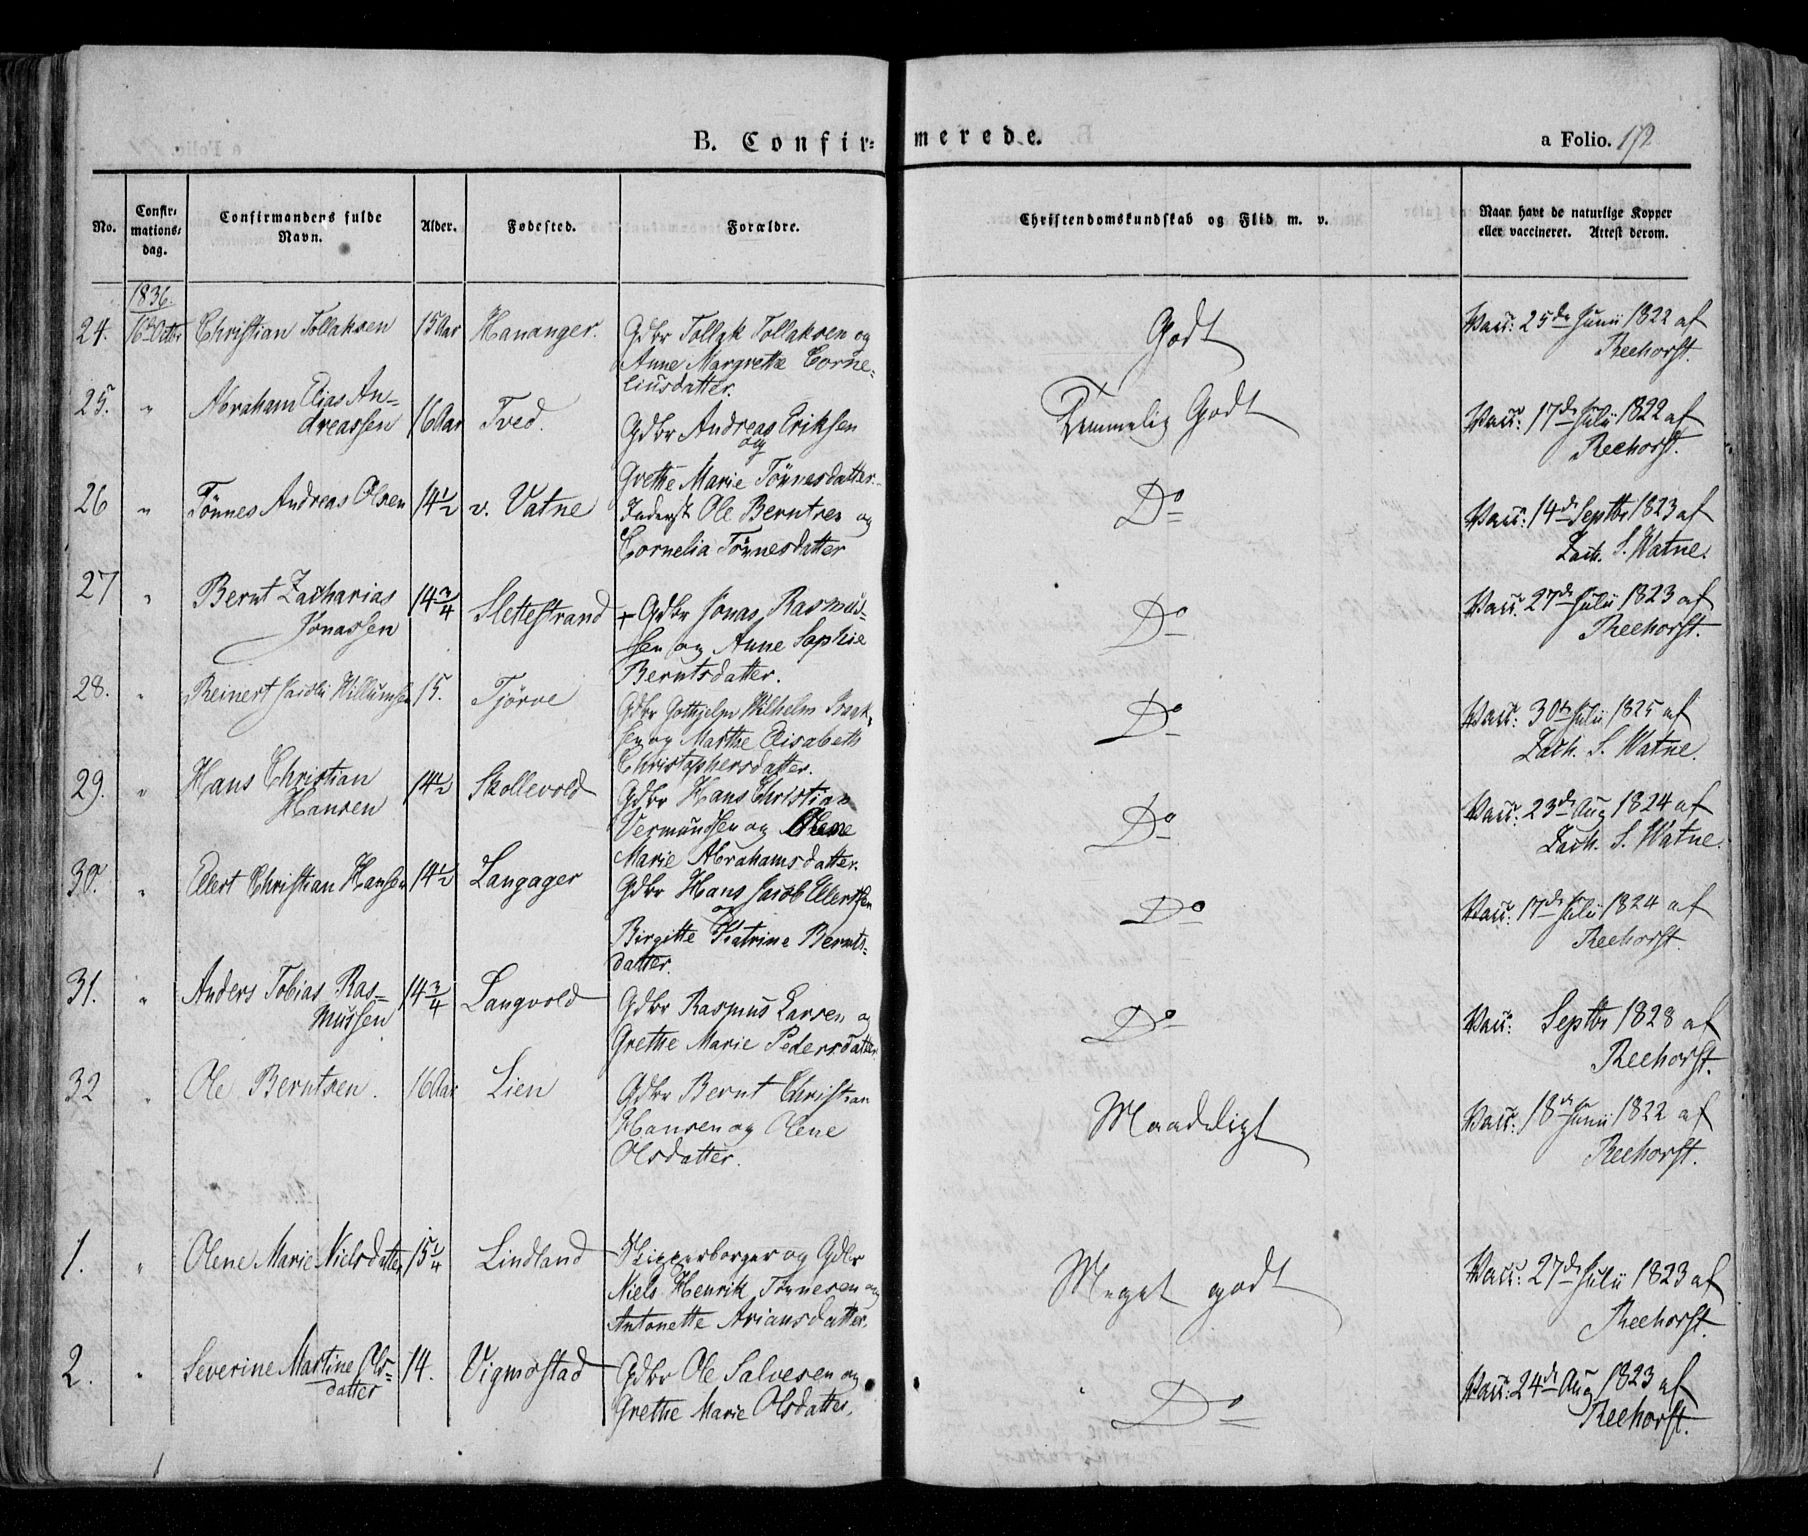 B. Confir= merede. a Folio. 172
No. Confir= mations= dag. Confirmandens fulde Navn. Alder. Fødested. Forældre. Christendomskundskab og Flid m. v. Naar havt de naturlige Kopper eller vaccineret. Attest derom.
1836.
24. 16 Octbr Christian Tollaksen 15 Aar Hananger. Gdbr Tollak Tollaksen og Godt Vacc: 25de Junii 1822 af
Anne Margrethe Corne= Reehorst.
liusdatter.
25. " Abraham Elias An= 16 Aar Tved. Gdbr Andreas Eriksen Temmelig Godt Vacc: 17de Julii 1822 af
dreassen og Reehorst.
Grethe Marie Tönnesdatter.
26 " Tönnes Andreas Olsen 14½ v. Vatne Inderst Ole Berntsen og Do Vacc: 14de Septbr 1823 af
Cornelia Tönnesdatter Zach. S. Watne.
27 " Bernt Zacharias 14¾ Slettestrand + Gdbr Jonas Rasmus= Do Vacc: 27de Julii 1823 af
Jonassen sen og Anne Sophie Reehorst.
Berntsdatter.
28. " Reinert Jacob Willumsen 15. Tjörve Gdbr Gothjelp Wilhelm Do Vacc: 30te Julii 1825 af
sen og Marthe Elisabeth Zach. S. Watne.
Christophersdatter.
29. " Hans Christian 14½ Skollevold Gdbr Hans Christian Do Vacc: 23de Aug 1824 af
Hansen Vermundsen og Olene Zach. S. Watne.
Marie Abrahamsdatter.
30. " Ellert Christian Hansen 14½ Langager Gdbr Hans Jacob Ellertsen Do Vacc: 17de Julii 1824 af
og Reehorst.
Birgitte Katrine Bernts=
datter.
31. " Anders Tobias Ras= 14¾ Langvold Gdbr Rasmus Larsen og Do Vacc: Septbr 1828 af
mussen Grethe Marie Pedersdatter Reehorst.
32 " Ole Berntsen. 16 Aar Lien Gdbr Bernt Christian Maadeligt Vacc: 18de Junii 1822 af
Hansen og Olene Reehorst.
Olsdatter.
1. " Olene Marie Nielsdatter 15¼ Lindland Skipperborger og Gdbr Meget godt Vacc: 27de Julii 1823 af
Niels Henrik Tönnesen og Reehorst.
Antonette Ariansdatter.
2. " Severine Martine Ols= 14. Vigmostad Gdbr Ole Salvesen og Do Vacc: 24de Aug 1823 af
datter Grethe Marie Olsdatter. Reehorst.